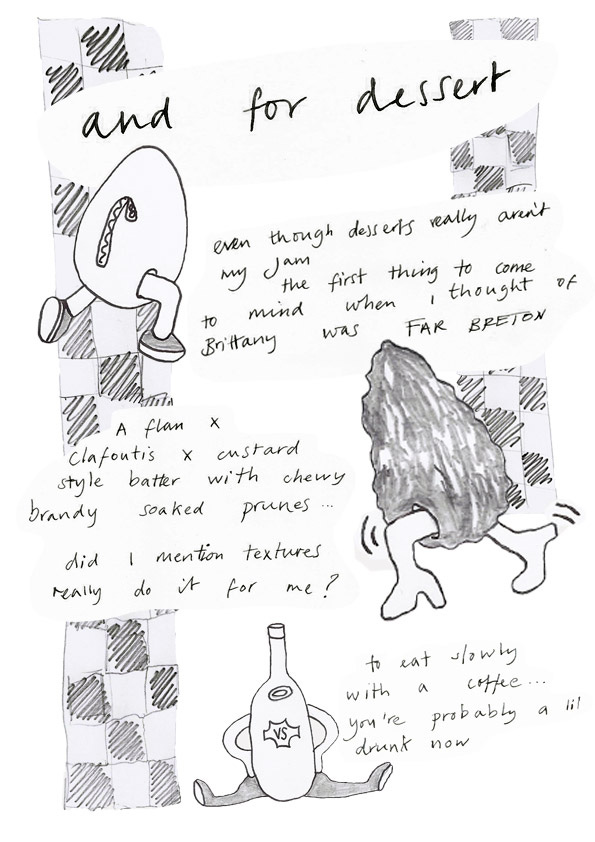 and for dessert
even though desserts really aren't
my Jam
the first thing to come
to mind when I thought of
Brittany was FAR BRETON
A flan x
Clafoutis x custard
style batter with chewy
brandy soaked prunes...
did I mention textures
really do it for me?
to eat slowly
with a coffee...
you're probably a lil
drunk now
VS